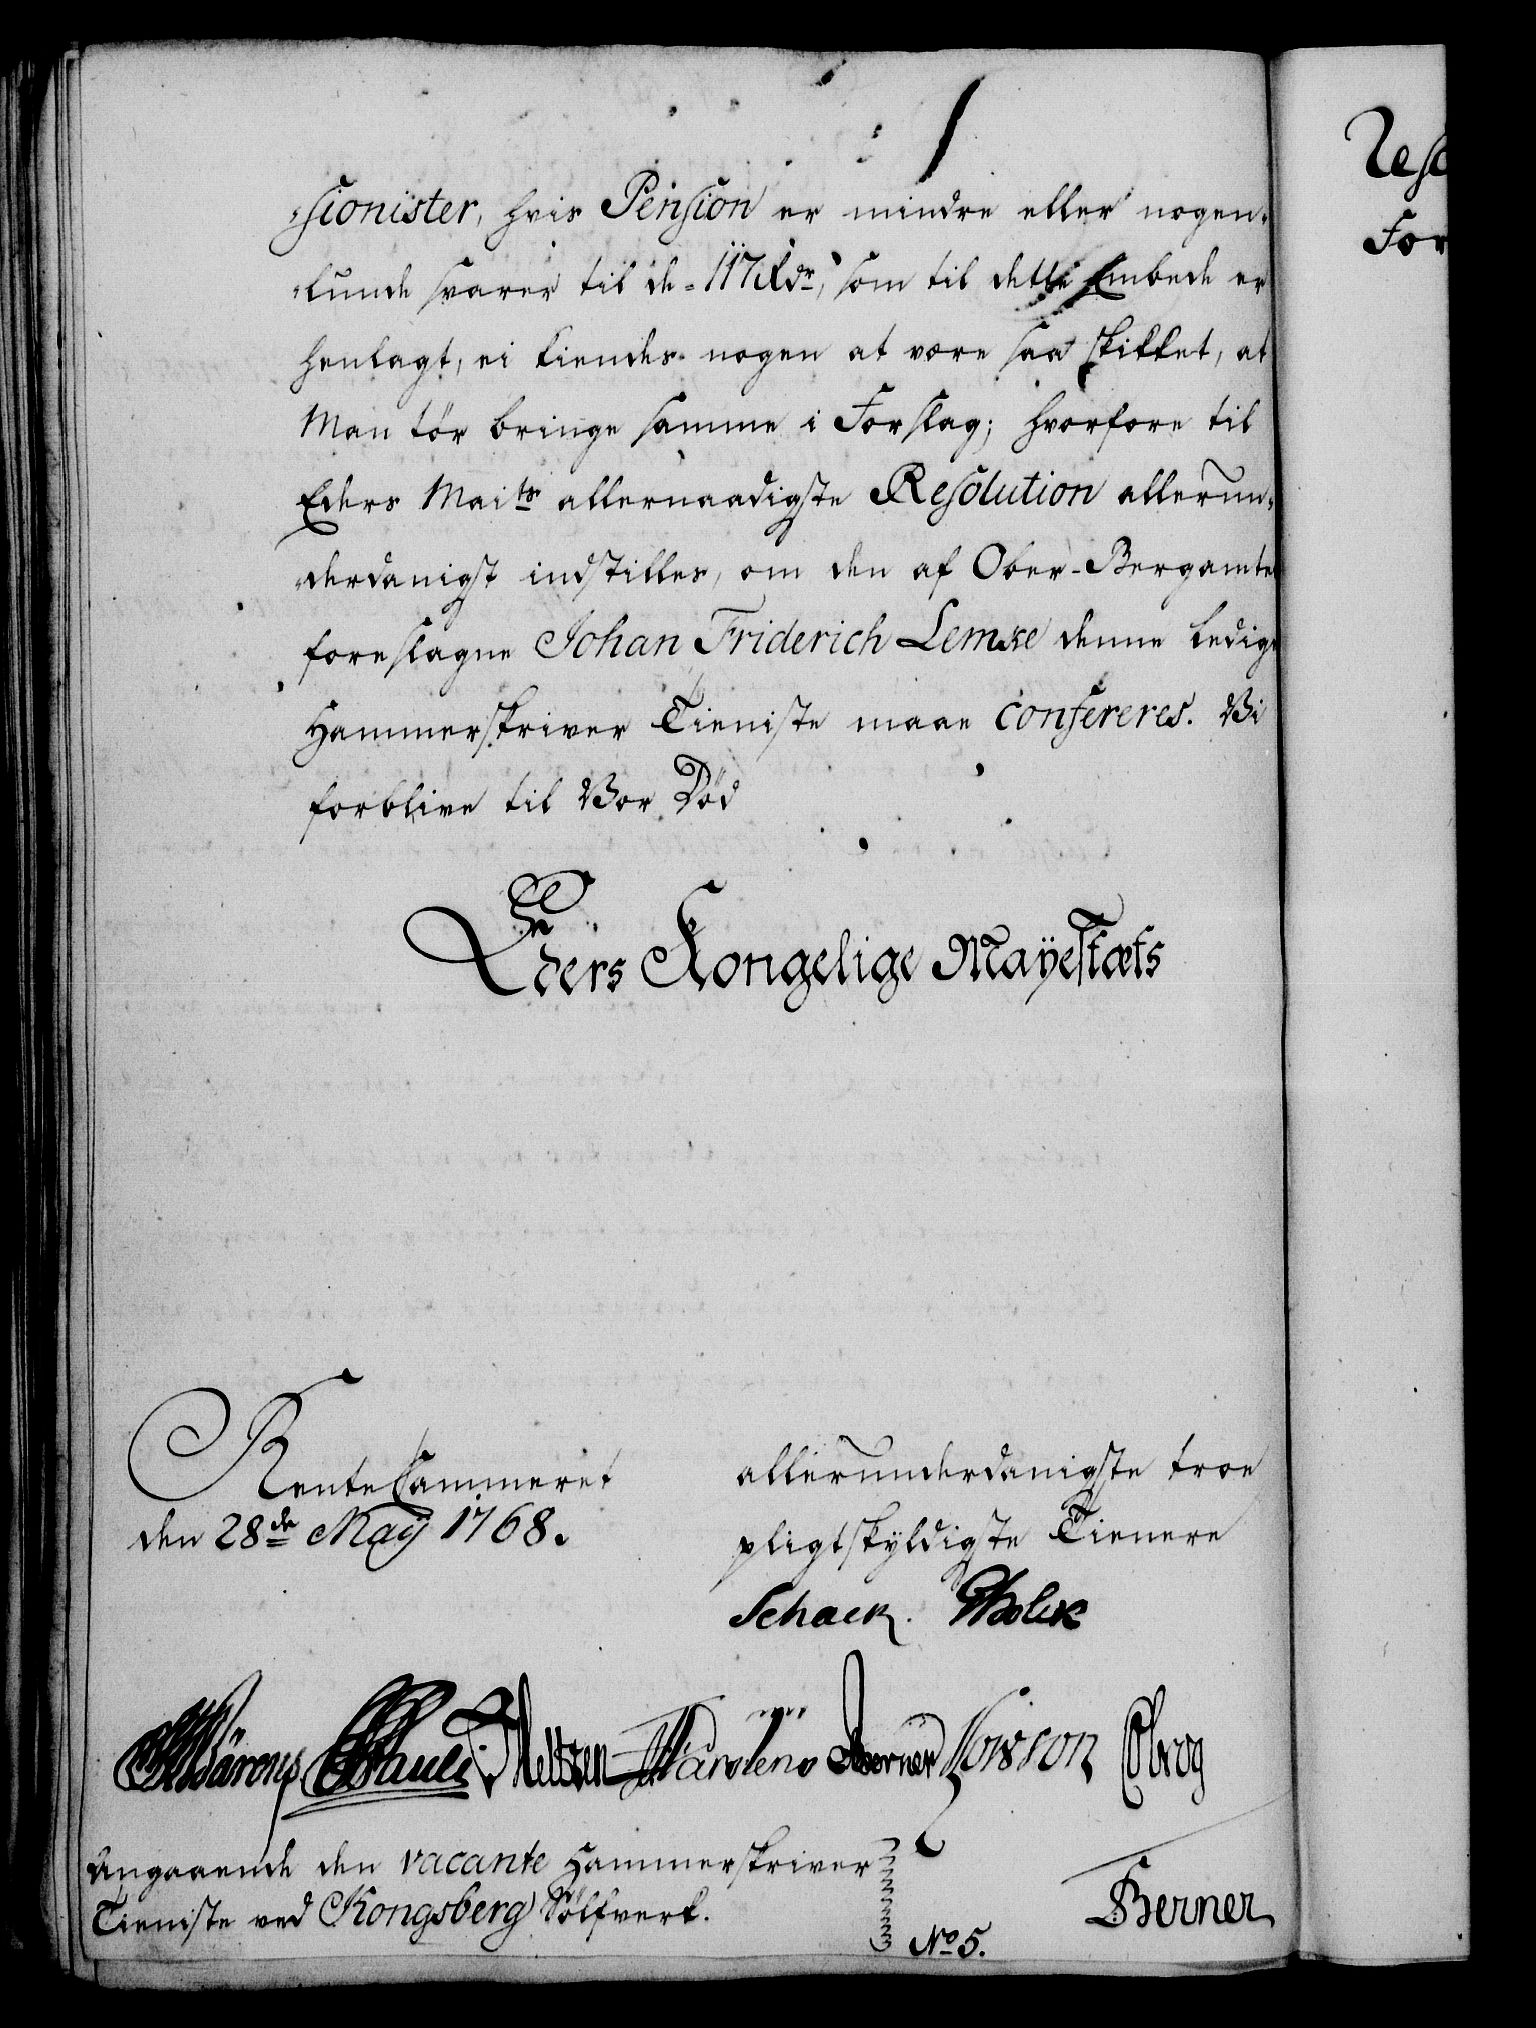 sionister, hvis Pension er mindre eller nogen-
lunde svarer til de 117 Rdr, som til dette Embede er
henlagt, ei kiendes nogen at være saa skikket, at
Man tør bringe samme i Forslag; hvorfore til
Eders Maits allernaadigste Resolution allerun-
derdanigst indstilles, om den af Ober-Bergamtet
foreslagne Johan Friderich Lemke denne ledige
Hammerskriver Tieniste maae confereres. Vi
forblive til Vor Død
Eders Kongelige Mayestæts
RenteCammeret
den 28de Maÿ 1768.
allerunderdanigste troe
pligtskyldigste Tienere
Schack. Holck
Bärens Pauli Meltzen Martens Berner Lowson Obrog
Angaaende den vacante Hammerskriver
Tieniste ved Kongsberg Sølfverk.
No 5.
Berner
Reso
For